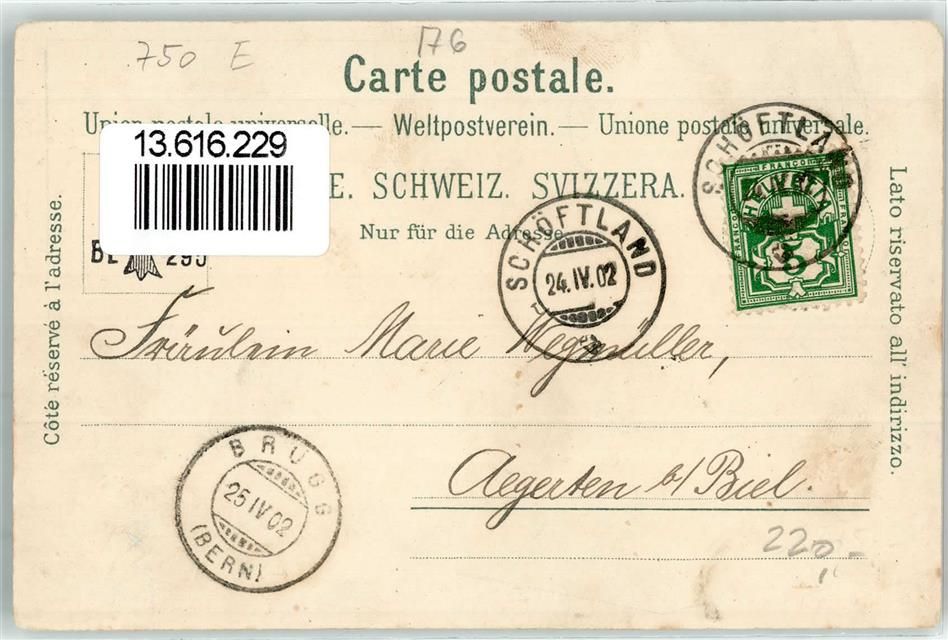 750 E
176
Carte postale.
Union postale universelle. — Weltpostverein. — Unione postale universale.
13.616.229
E. SCHWEIZ. SVIZZERA.
Nur für die Adresse
Côté réservé à l'adresse.
Lato riservato all' indirizzo.
SCHÖFTLAND
FRANCO
HELVETIA
5
SCHÖFTLAND
24.IV.02
Fräulein Marie Wegmüller,
BRÜGG
25 IV 02
(BERN)
Aegerten b/ Biel.
220,-